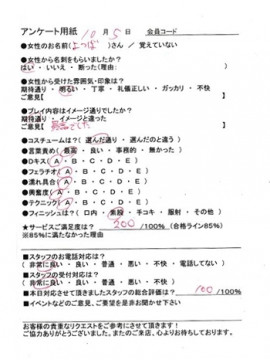 アンケート用紙 10月5日 会員コード
●女性のお名前(よつば)さん / 覚えていない
●女性から名刺をもらいましたか?
はい・いいえ・断った(理由:
●女性から受けた雰囲気・印象は?
期待通り・明るい・丁寧・礼儀正しい・ガッカリ・不快
ご意見【
●プレイ内容はイメージ通りでしたか?
期待通り・イメージと違った
ご意見【最高でした
●コスチュームは?(選んだ通り・選んだのと違う)
●言葉責め(最高・良い・事務的・無かった)
●Dキス(A・B・C・D・E)
●フェラチオ(A・B・C・D・E)
●濡れ具合(A・B・C・D・E)
●興奮度(A・B・C・D・E)
●テクニック(A・B・C・D・E)
●フィニッシュは?(口内・素股・手コキ・服射・その他)
★サービスご満足度は? 200/100%(合格ライン85%)
※85%に満たなかった理由
■スタッフのお電話対応は?
(非常に良い・良い・普通・悪い・不快・電話してない)
■スタッフの受付対応は?
(非常に良い・良い・普通・悪い・不快)
■本日対応させて頂きましたスタッフの総合評価は? 100/100%
■イベントなどのご意見、ご要望を是非お聞かせ下さい
お客様の貴重なリクエストをご参考にさせて頂きます!
ご協力ありがとうございました。またのご来店、心よりお待ちしております。